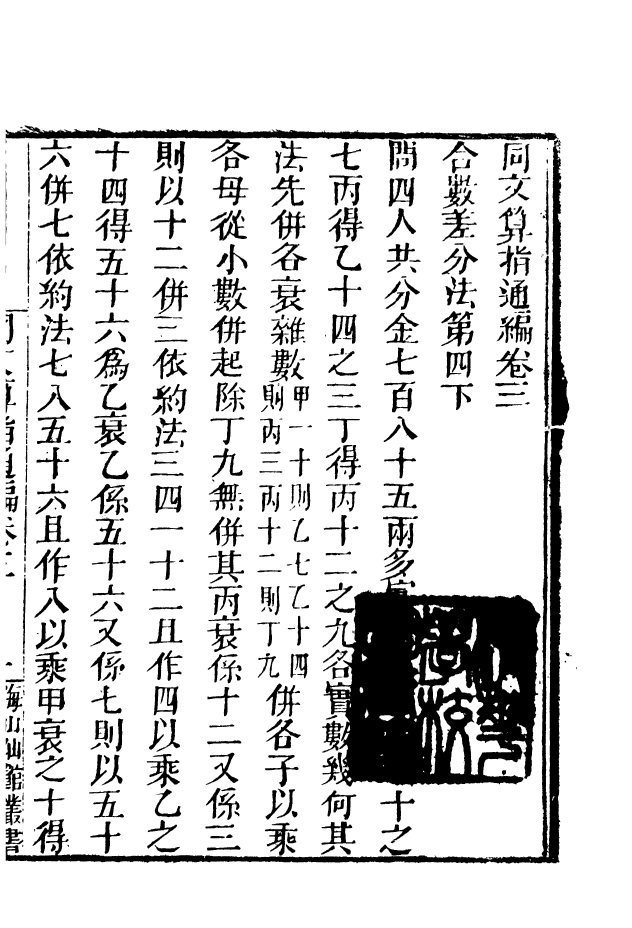 同文算指通編卷三
合數差分法第四下
問四人共分金七百八十五兩多十之
七丙得乙十四之三丁得丙十二之九各實數幾何其
法先併各衰雜數甲一十則乙七乙十四則丙三丙十二則丁九併各子以乘
各母從小數併起除丁九無併其丙衰係十二又係三
則以十二併三依約法三四一十二且作四以乘乙之
十四得五十六爲乙衰乙係五十六又係七則以五十
六併七依約法七八五十六且作八以乘甲衰之十得
海山仙館叢書